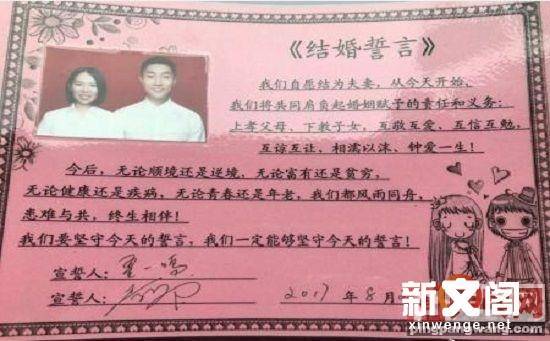 《结婚誓言》
我们自愿结为夫妻，从今天开始，
我们将共同肩负起婚姻赋予的责任和义务：
上孝父母、下教子女，互敬互爱、互信互勉，
互谅互让，相濡以沫、钟爱一生！
今后，无论顺境还是逆境，无论富有还是贫穷，
无论健康还是疾病，无论青春还是年老，我们都风雨同舟，
患难与共，终生相伴！
我们要坚守今天的誓言，我们一定能够坚守今天的誓言！
宣誓人：
宣誓人：
2017 年 8 月
新文阁
网
xinwenge.net
pingpangwang.com